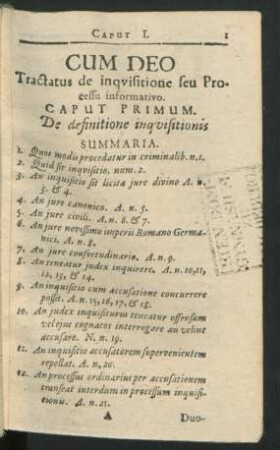 CAPUT I. 1
CUM DEO
Tractatus de inqvisitione seu Pro-
cessu informativo.
CAPUT PRIMUM.
De definitione inqvisitionis
SUMMARIA.
1. Quot modis procedatur in criminalib. n.1.
2. Quid sit inqvisitio. num. 2.
3. An inquisitio sit licita jure divino A. n.
3. & 4.
4. An jure canonico. A. n. 5.
5. An jure civili. A n. 6. & 7.
6. An jure novissimo imperii Romano Germa-
nici. A n. 8.
7. An jure consvetudinario. A n. 9.
8. An teneatur judex inquirere. A. n. 10, 11,
12, 13, & 14.
9. An inquisitio cum accusatione concurrere
possit. A n. 15, 16, 17, & 18.
10. An judex inquisiturus teneatur offensum
vel ejus cognatos interrogare an velint
accusare. N. n. 19.
11. An inquisitio accusatorem supervenientem
repellat. A n. 20.
12. An processus ordinarius per accusationem
transeat interdum in processum inquisi-
tionis. A n. 21.
A Duo-